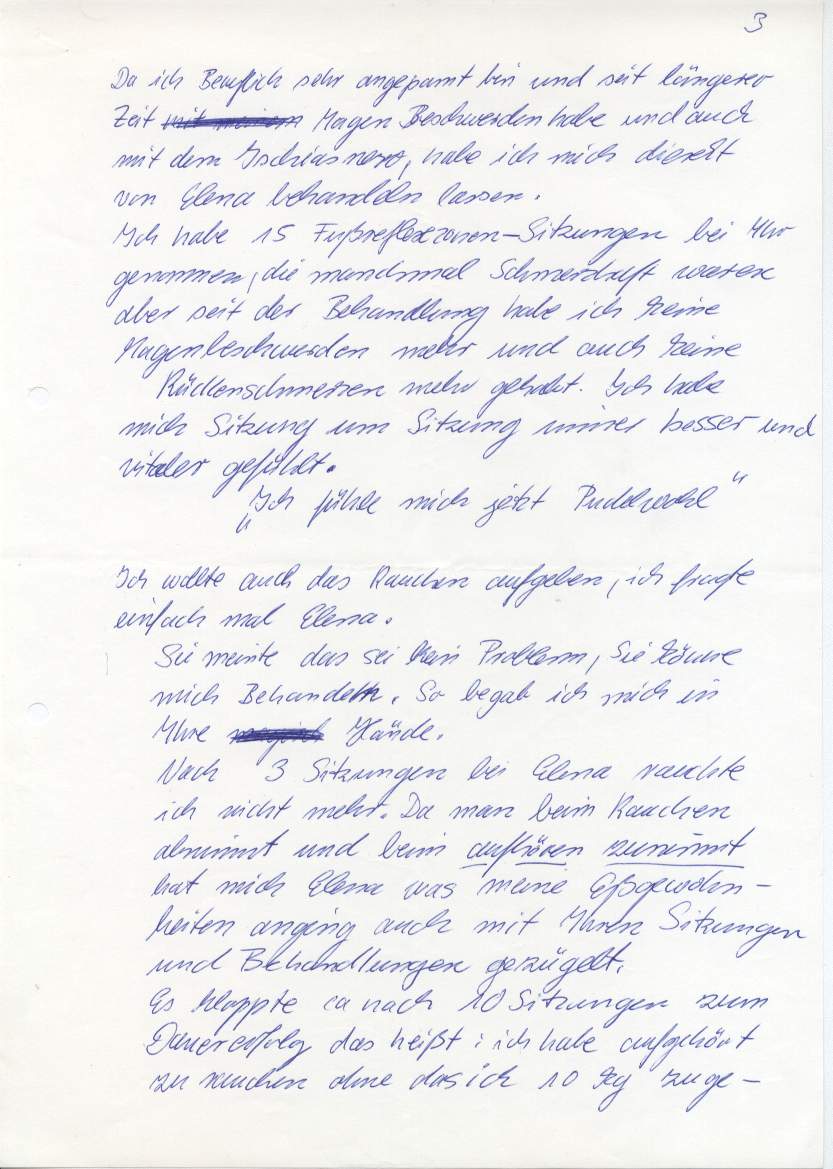 3
Da ich Beruflich sehr angepannt bin und seit längerer
Zeit mit meinem Magen Beschwerden habe und auch
mit dem Ischiasnerv, habe ich mich direkt
von Elena behandeln lassen.
Ich habe 15 Fußreflexzonen-Sitzungen bei Ihr
genommen, die manchmal Schmerzhaft waren
aber seit der Behandlung habe ich keine
Magenbeschwerden mehr und auch keine
Rückenschmerzen mehr gehabt. Ich habe
mich Sitzung um Sitzung immer besser und
vitaler gefühlt.
„Ich fühle mich jetzt Pudelwohl“
Ich wollte auch das Rauchen aufgeben, ich fragte
einfach mal Elena.
Sie meinte das sei kein Problem, Sie könne
mich Behandeln. So begab ich mich in
Ihre Hände.
Nach 3 Sitzungen bei Elena rauchte
ich nicht mehr. Da man beim Rauchen
abnimmt und beim aufhören zunimmt
hat mich Elena was meine Eßgewohn-
heiten anging auch mit Ihren Sitzungen
und Behandlungen gezügelt.
Es kloppte ca nach 10 Sitzungen zum
Dauererfolg das heißt: ich habe aufgehört
zu rauchen ohne das ich 10 kg zuge-